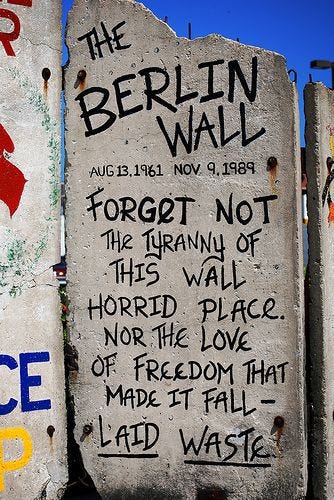 R
THE
BERLIN
WALL
AUG 13, 1961 NOV. 9, 1989
FORGET NOT
THE TYRANNY OF
THIS WALL
HORRID PLACE.
NOR THE LOVE
OF FREEDOM THAT
MADE IT FALL –
LAID WASTE
CE
P